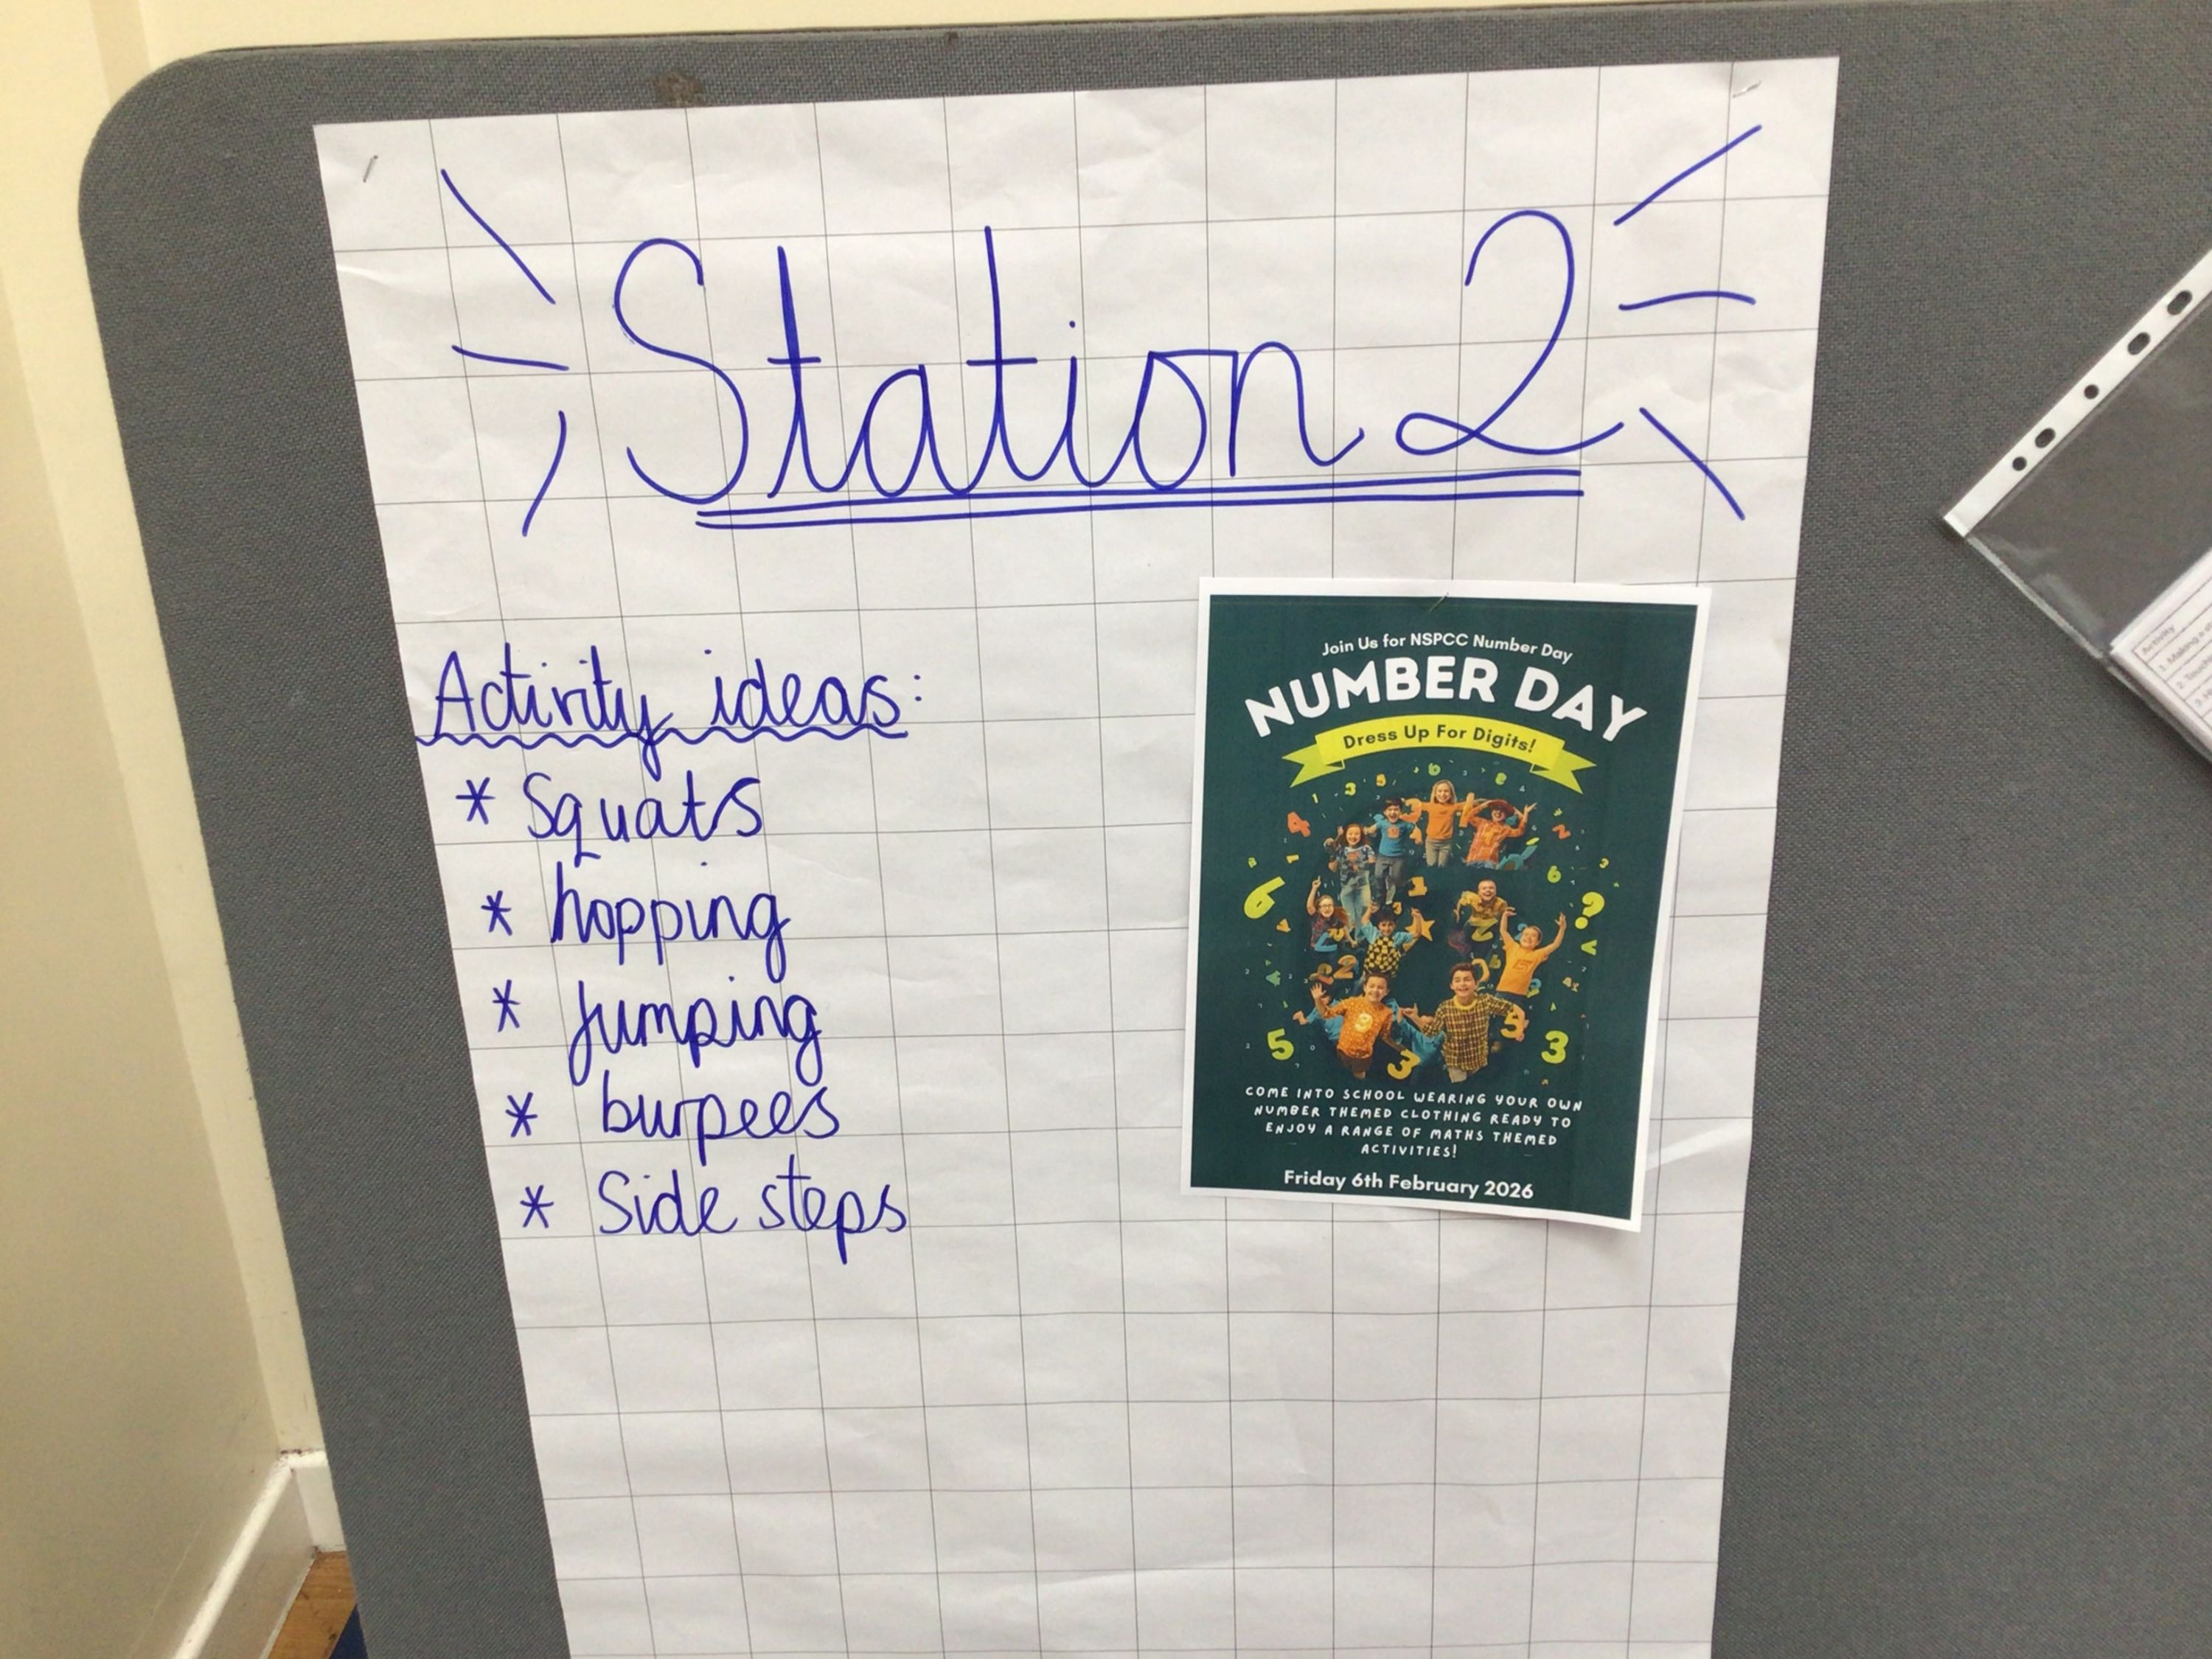 Station 2
Activity ideas:
* Squats
* hopping
* Jumping
* burpees
* Side steps
Join Us for NSPCC Number Day
NUMBER DAY
Dress Up For Digits!
COME INTO SCHOOL WEARING YOUR OWN
NUMBER THEMED CLOTHING READY TO
ENJOY A RANGE OF MATHS THEMED
ACTIVITIES!
Friday 6th February 2026
Activity